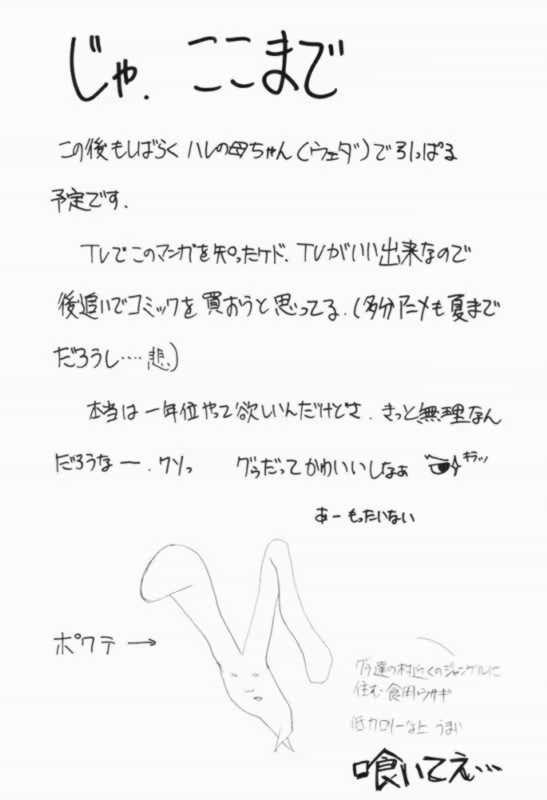 じゃ、ここまで
この後もしばらくハレの母ちゃん(ウェダ)で引っぱる
予定です.
TVでこのマンガを知ったケド、TVがいい出来なので
後追いでコミックを買おうと思ってる.(多分アニメも夏まで
だろうし‥‥悲)
本当は一年位やって欲しいんだけどさ.きっと無理なん
だろうなー.クソっ グゥだってかわいいしなぁ キラッ
あーもったいない
ポクテ→
グゥ達の村近くのジャングルに
住む食用ウサギ
低カロリーな上うまい
喰いてえ…